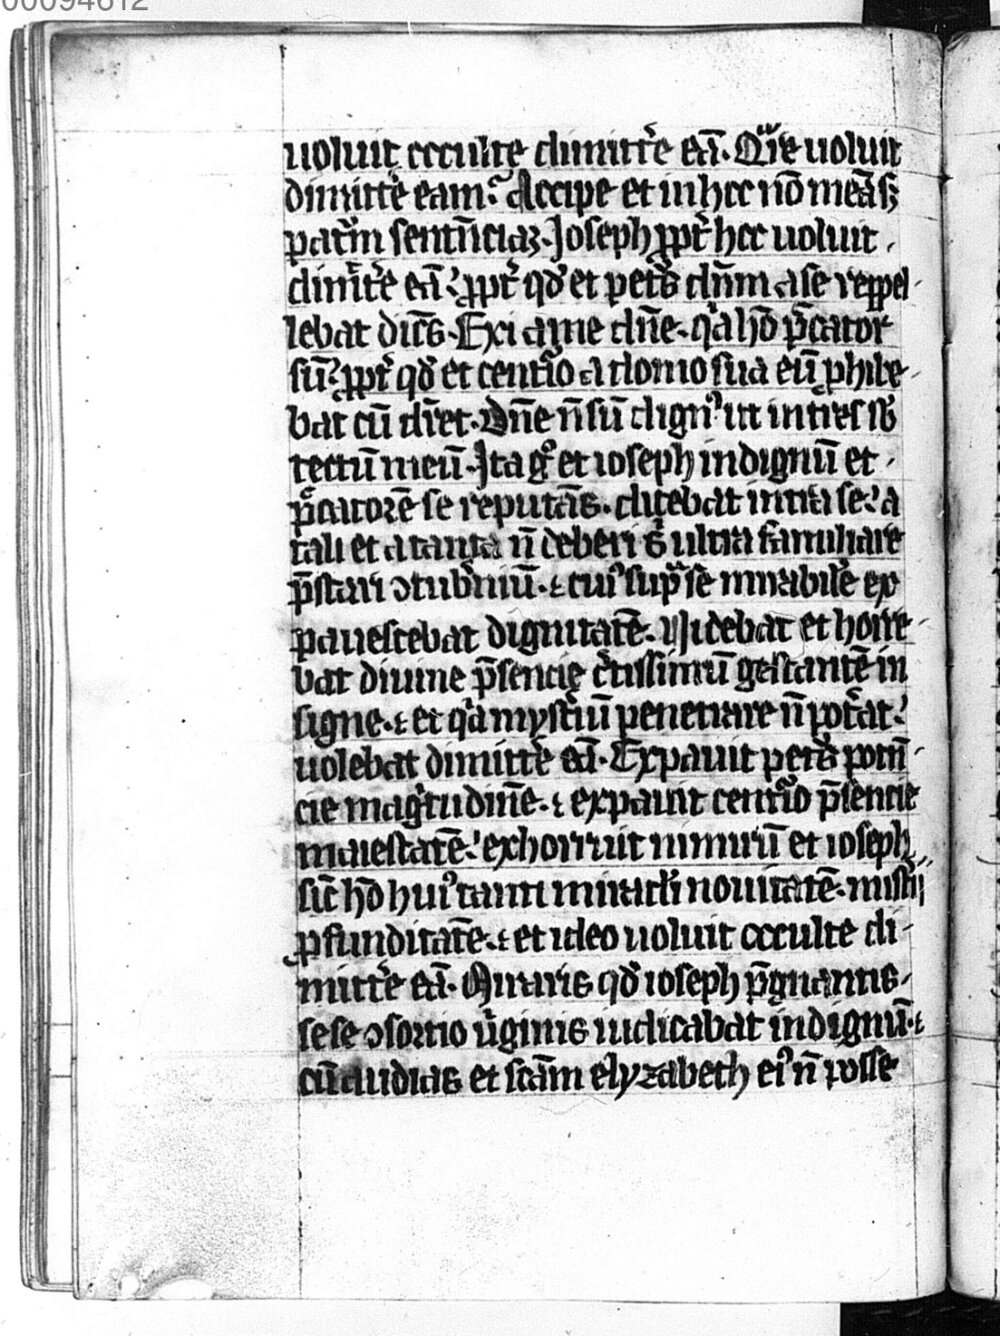 00094612
uoluit occulte dimittẽ eã. Quͣre uoluit
dimittẽ eam? Accipe et in hoc nõ meã sꝫ
patrũ sentẽciaꝫ. Joseph ꝓpt̃ hoc uoluit
dimit̃e eã? ꝓpt̃ qđ et petrꝰ dñm a se reppel
lebat dicẽs. Exi a me dñe. qͥa hõ p̃cator
sũ? ꝓpt̃ qđ et centͥo a domo sua eũ ꝓhibe
bat cũ dic̃et. Dñe ñ sũ dignꝰ ut intres sb̾
tectũ meũ. Itag̊ et ioseph indignũ et
p̃catorẽ se reputãs. dicebat intra se? a
tali et a tanta ñ deberi sͥ ultra familiare
p̃stari ꝯtub̾niũ. ⁊ cuiꝰ supͣ se mirabilẽ ex
pauescebat dignitatẽ. Uidebat et horre
bat diuine p̃sencie c̃tissimũ gestantẽ in
signe. ⁊ et qͥa mystiũ penetrare ñ pot̃at?
uolebat dimittẽ eã. Expauit petrꝰ potẽ
cie magͥtudinẽ. ⁊ expauit centͥo p̃sencie
maiestatẽ? exhorruit nimirũ et ioseph
sic̃ hõ huiꝰ tanti miracłi nouitatẽ. mistͥij
ꝓfunditatẽ. ⁊ et ideo uoluit occulte di
mittẽ eã. Miraris qđ ioseph p̃gnantis
sese ꝯsortio ũginis iudicabat indignũ. ⁊
cũ audias et scãm elyzabeth eiꝰ ñ posse